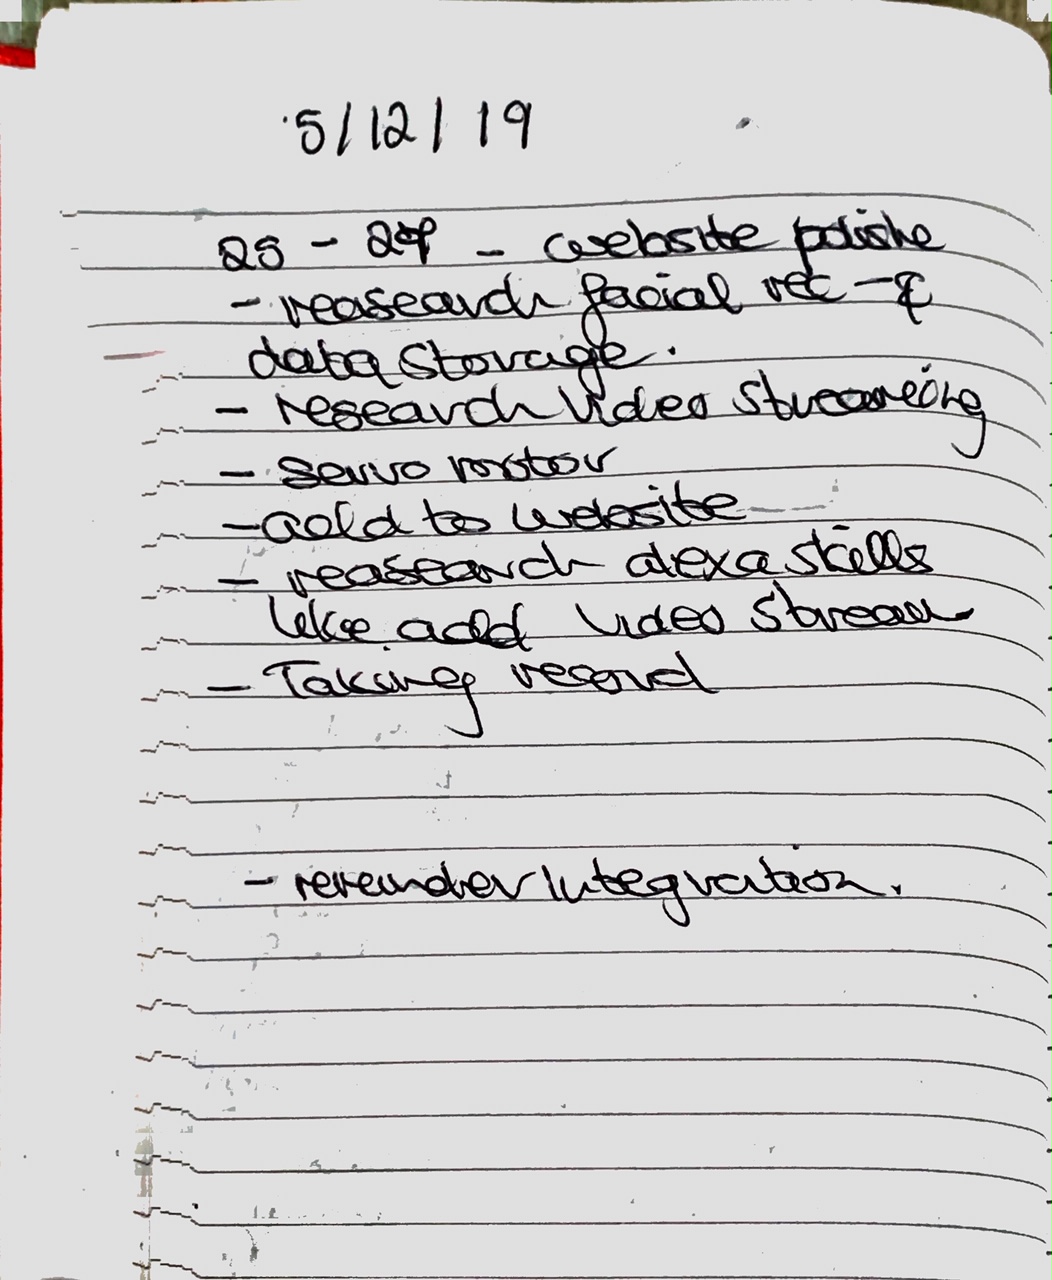 5/12/19
25 - 27 - website polishe
- reasearch facial rec - &
data storage.
- research video streaming
- servo motor
- add to website
- reasearch alexa skills
like add video stream
- Taking record
- remainder integration.